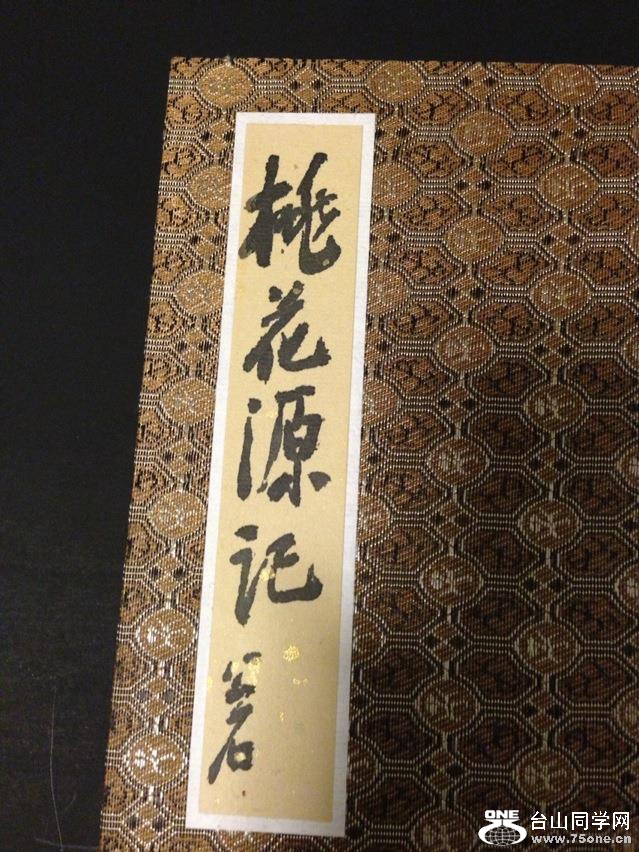 桃花源记
ONE
台山同学网
www.75one.cn